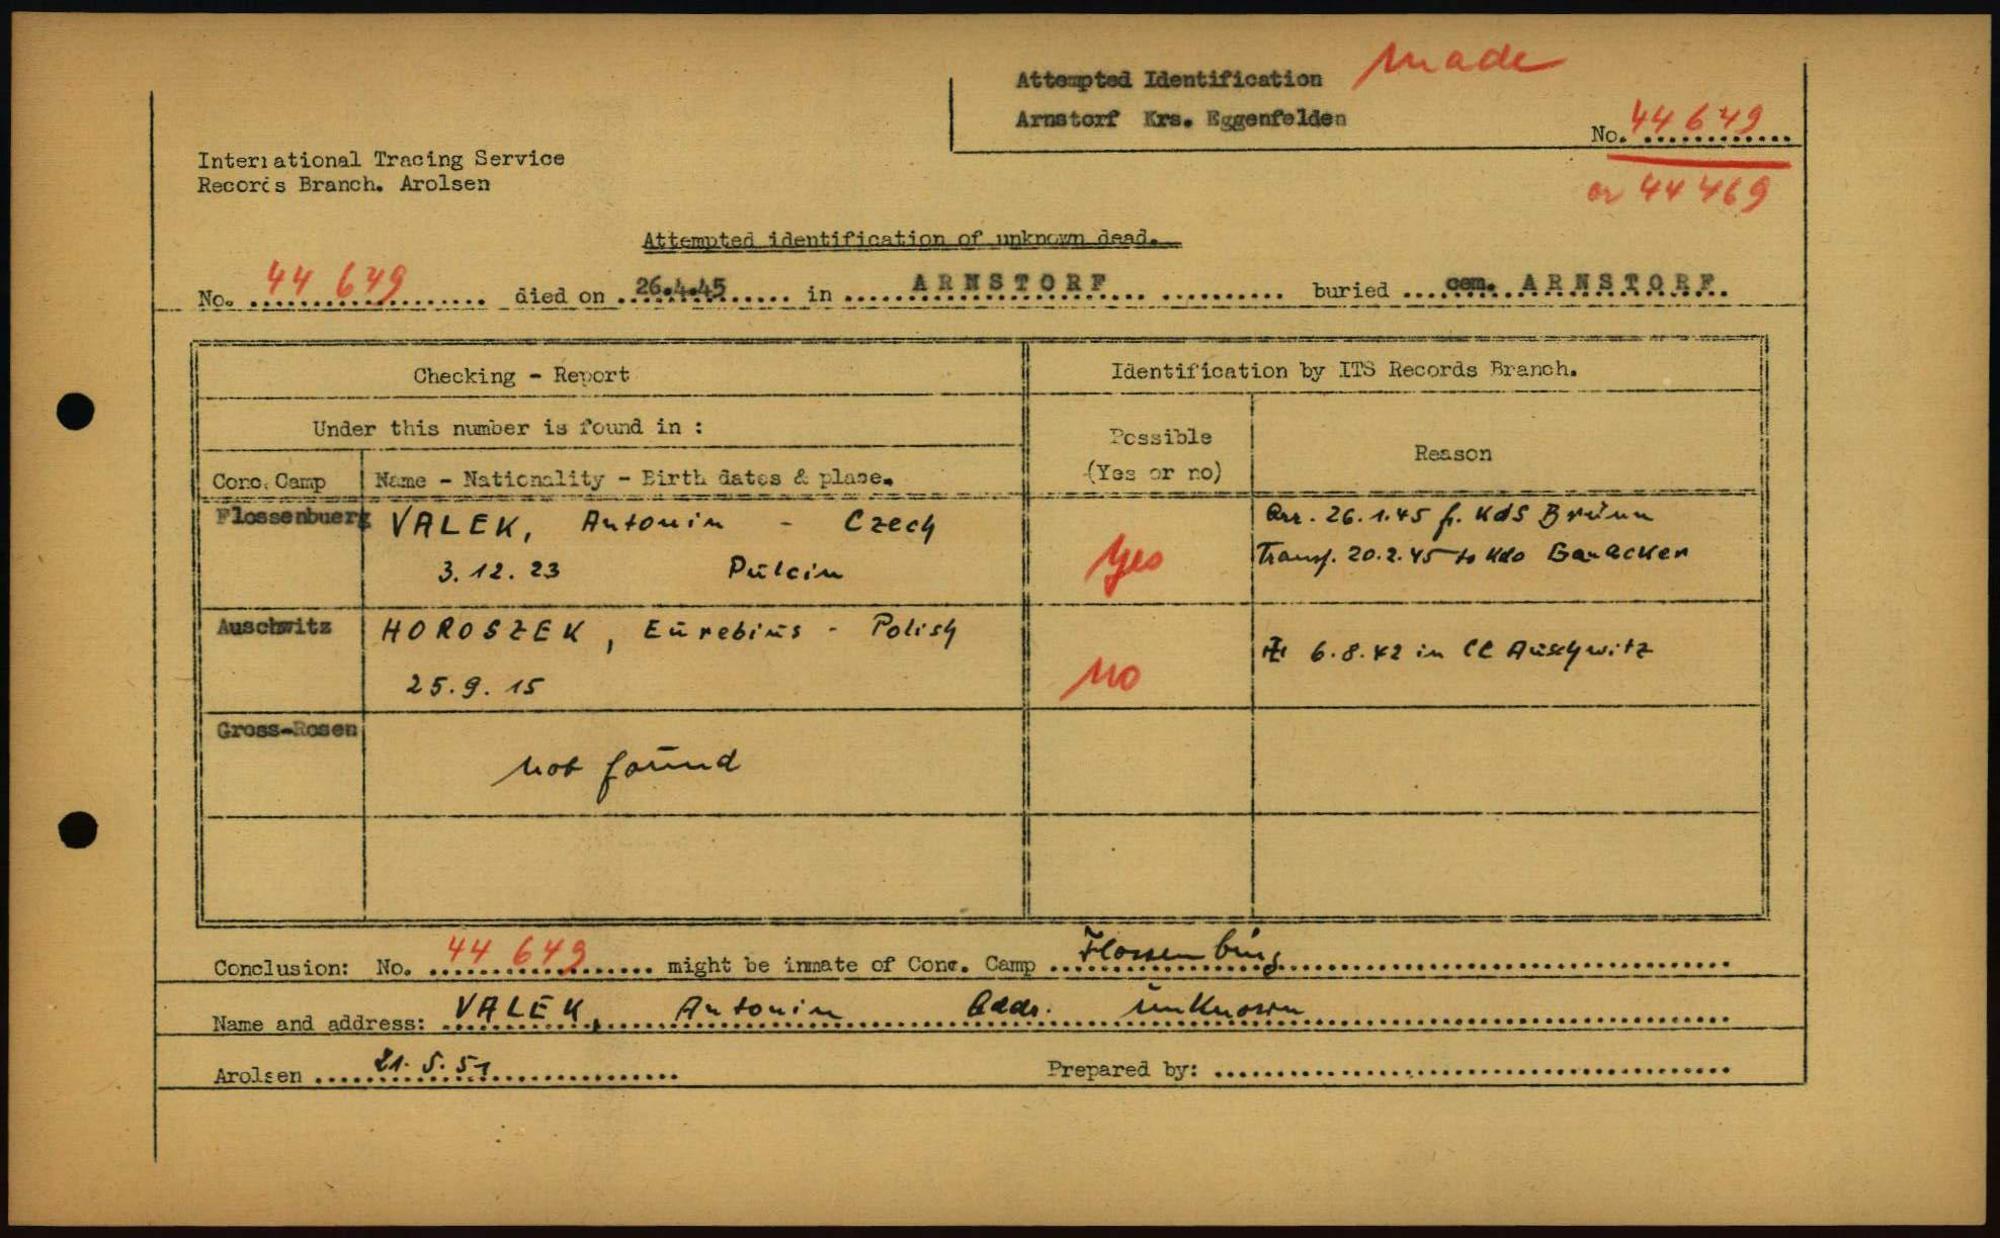 Attempted Identification made
Arnstorf Krs. Eggenfelden
No. 44 649
or 44 469
International Tracing Service
Records Branch. Arolsen
Attempted identification of unknown dead.
No. 44 649 died on 26.4.45 in ARNSTORF buried cem. ARNSTORF.
Checking - Report
Identification by ITS Records Branch.
Under this number is found in :
Possible
(Yes or no)
Reason
Conc. Camp
Name - Nationality - Birth dates & place.
Flossenbuerg
VALEK, Antonin - Czech
3.12.23 Pülcin
yes
Arr. 26.1.45 f. KdS Brünn
Transf. 20.2.45 to Kdo Ganacker
Auschwitz
HOROSZEK, Eürebiüs - Polish
25.9.15
no
6.8.42 in CC Aüschwitz
Gross-Rosen
not found
Conclusion: No. 44 649 might be inmate of Conc. Camp Flossenbürg
Name and address: VALEK, Antonin Addr. unknown
Arolsen 21.5.51
Prepared by: